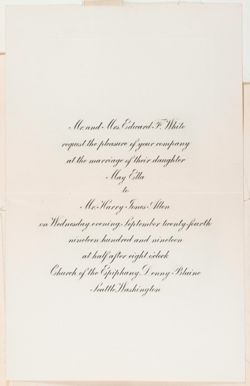 Mr. and Mrs. Edward F. White
request the pleasure of your company
at the marriage of their daughter
May Ella
to
Mr. Harry Jones Allen
on Wednesday evening, September twenty-fourth
nineteen hundred and nineteen
at half after eight o'clock
Church of the Epiphany, Denny-Blaine
Seattle, Washington